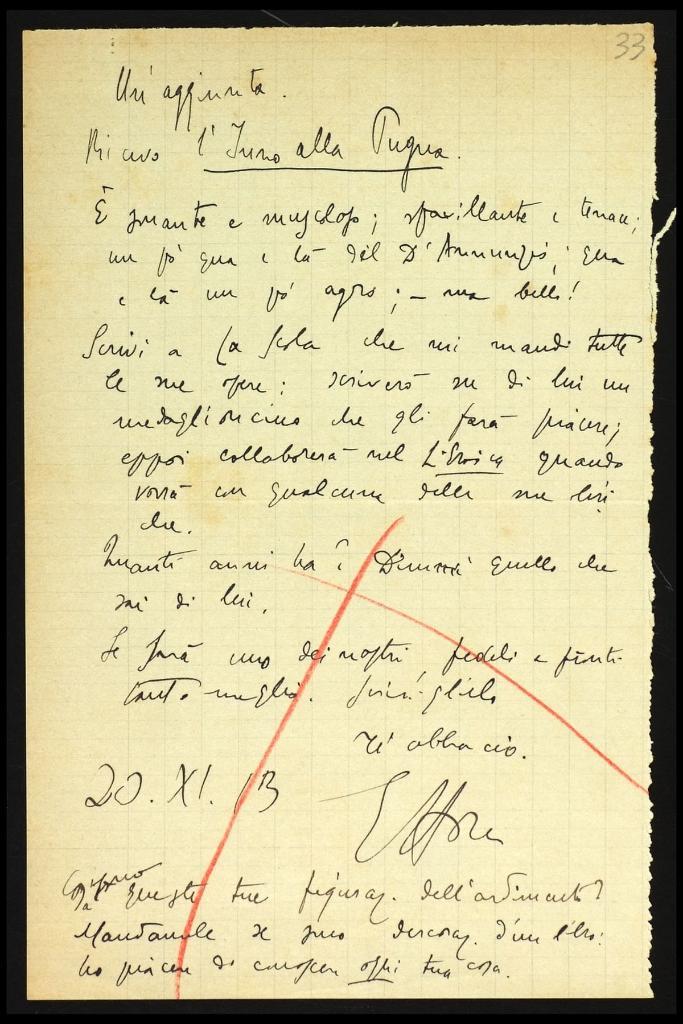 33
Un' aggiunta.
Ricevo l'Inno alla Pugna.
È sonante e muscoloso; sfavillante e tenace;
un pò qua e là del D'Annunzio; qua
e là un pò agro; – ma bello!
Scrivi a La Scola che mi mandi tutte
le sue opere: scriverò su di lui un
medaglioncino che gli farà piacere;
eppoi collaborerà nel L'Eroica quando
vorrà con qualcuna delle sue liri
che.
Quanti anni ha? Dimmi quello che
sai di lui.
Se sarà uno dei nostri, fedeli e pronti
tanto meglio. Scrivi-glielo
Ti abbraccio.
20. XI. 13
Ettore
queste tue figuraz. dell'ardimento?
Mandamele se sono decoraz. d'un libro:
ho piacere di conoscere ogni tua cosa.